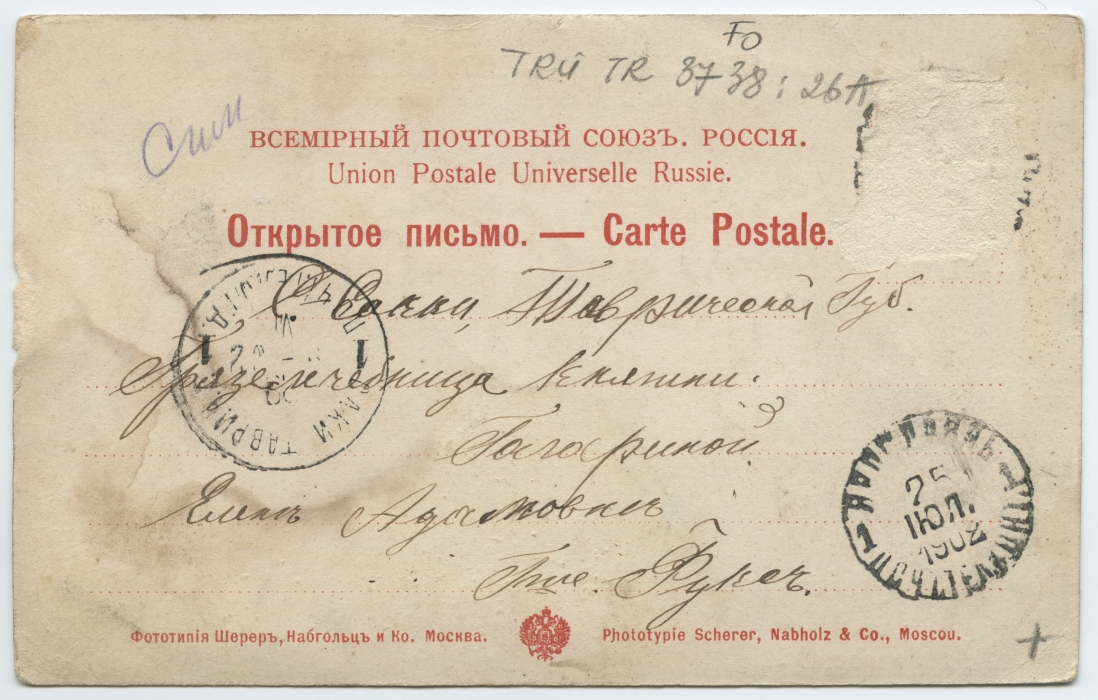 FO
TRÜ TR 8738: 26A
Сим
ВСЕМІРНЫЙ ПОЧТОВЫЙ СОЮЗЪ. РОССІЯ.
Union Postale Universelle Russie.
Открытое письмо. — Carte Postale.
Саки, Таврической Губ.
Грязелечебница Княжни.
Гагариной.
Еленѣ Адамовнѣ
Г-жѣ Фуксъ.
САКИ ТАВРИЧ.
1 1
VI
ЯРОСЛАВЛЬ
25
ІЮЛ.
1902
1 1
Фототипія Шереръ, Набгольцъ и Ко. Москва.
Phototypie Scherer, Nabholz & Co., Moscou.
+